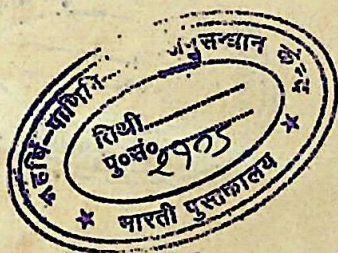 महर्षि-पाणिनि-... अनुसन्धान केन्द्र
तिथी............
पु०सं०
भारती पुस्तकालय